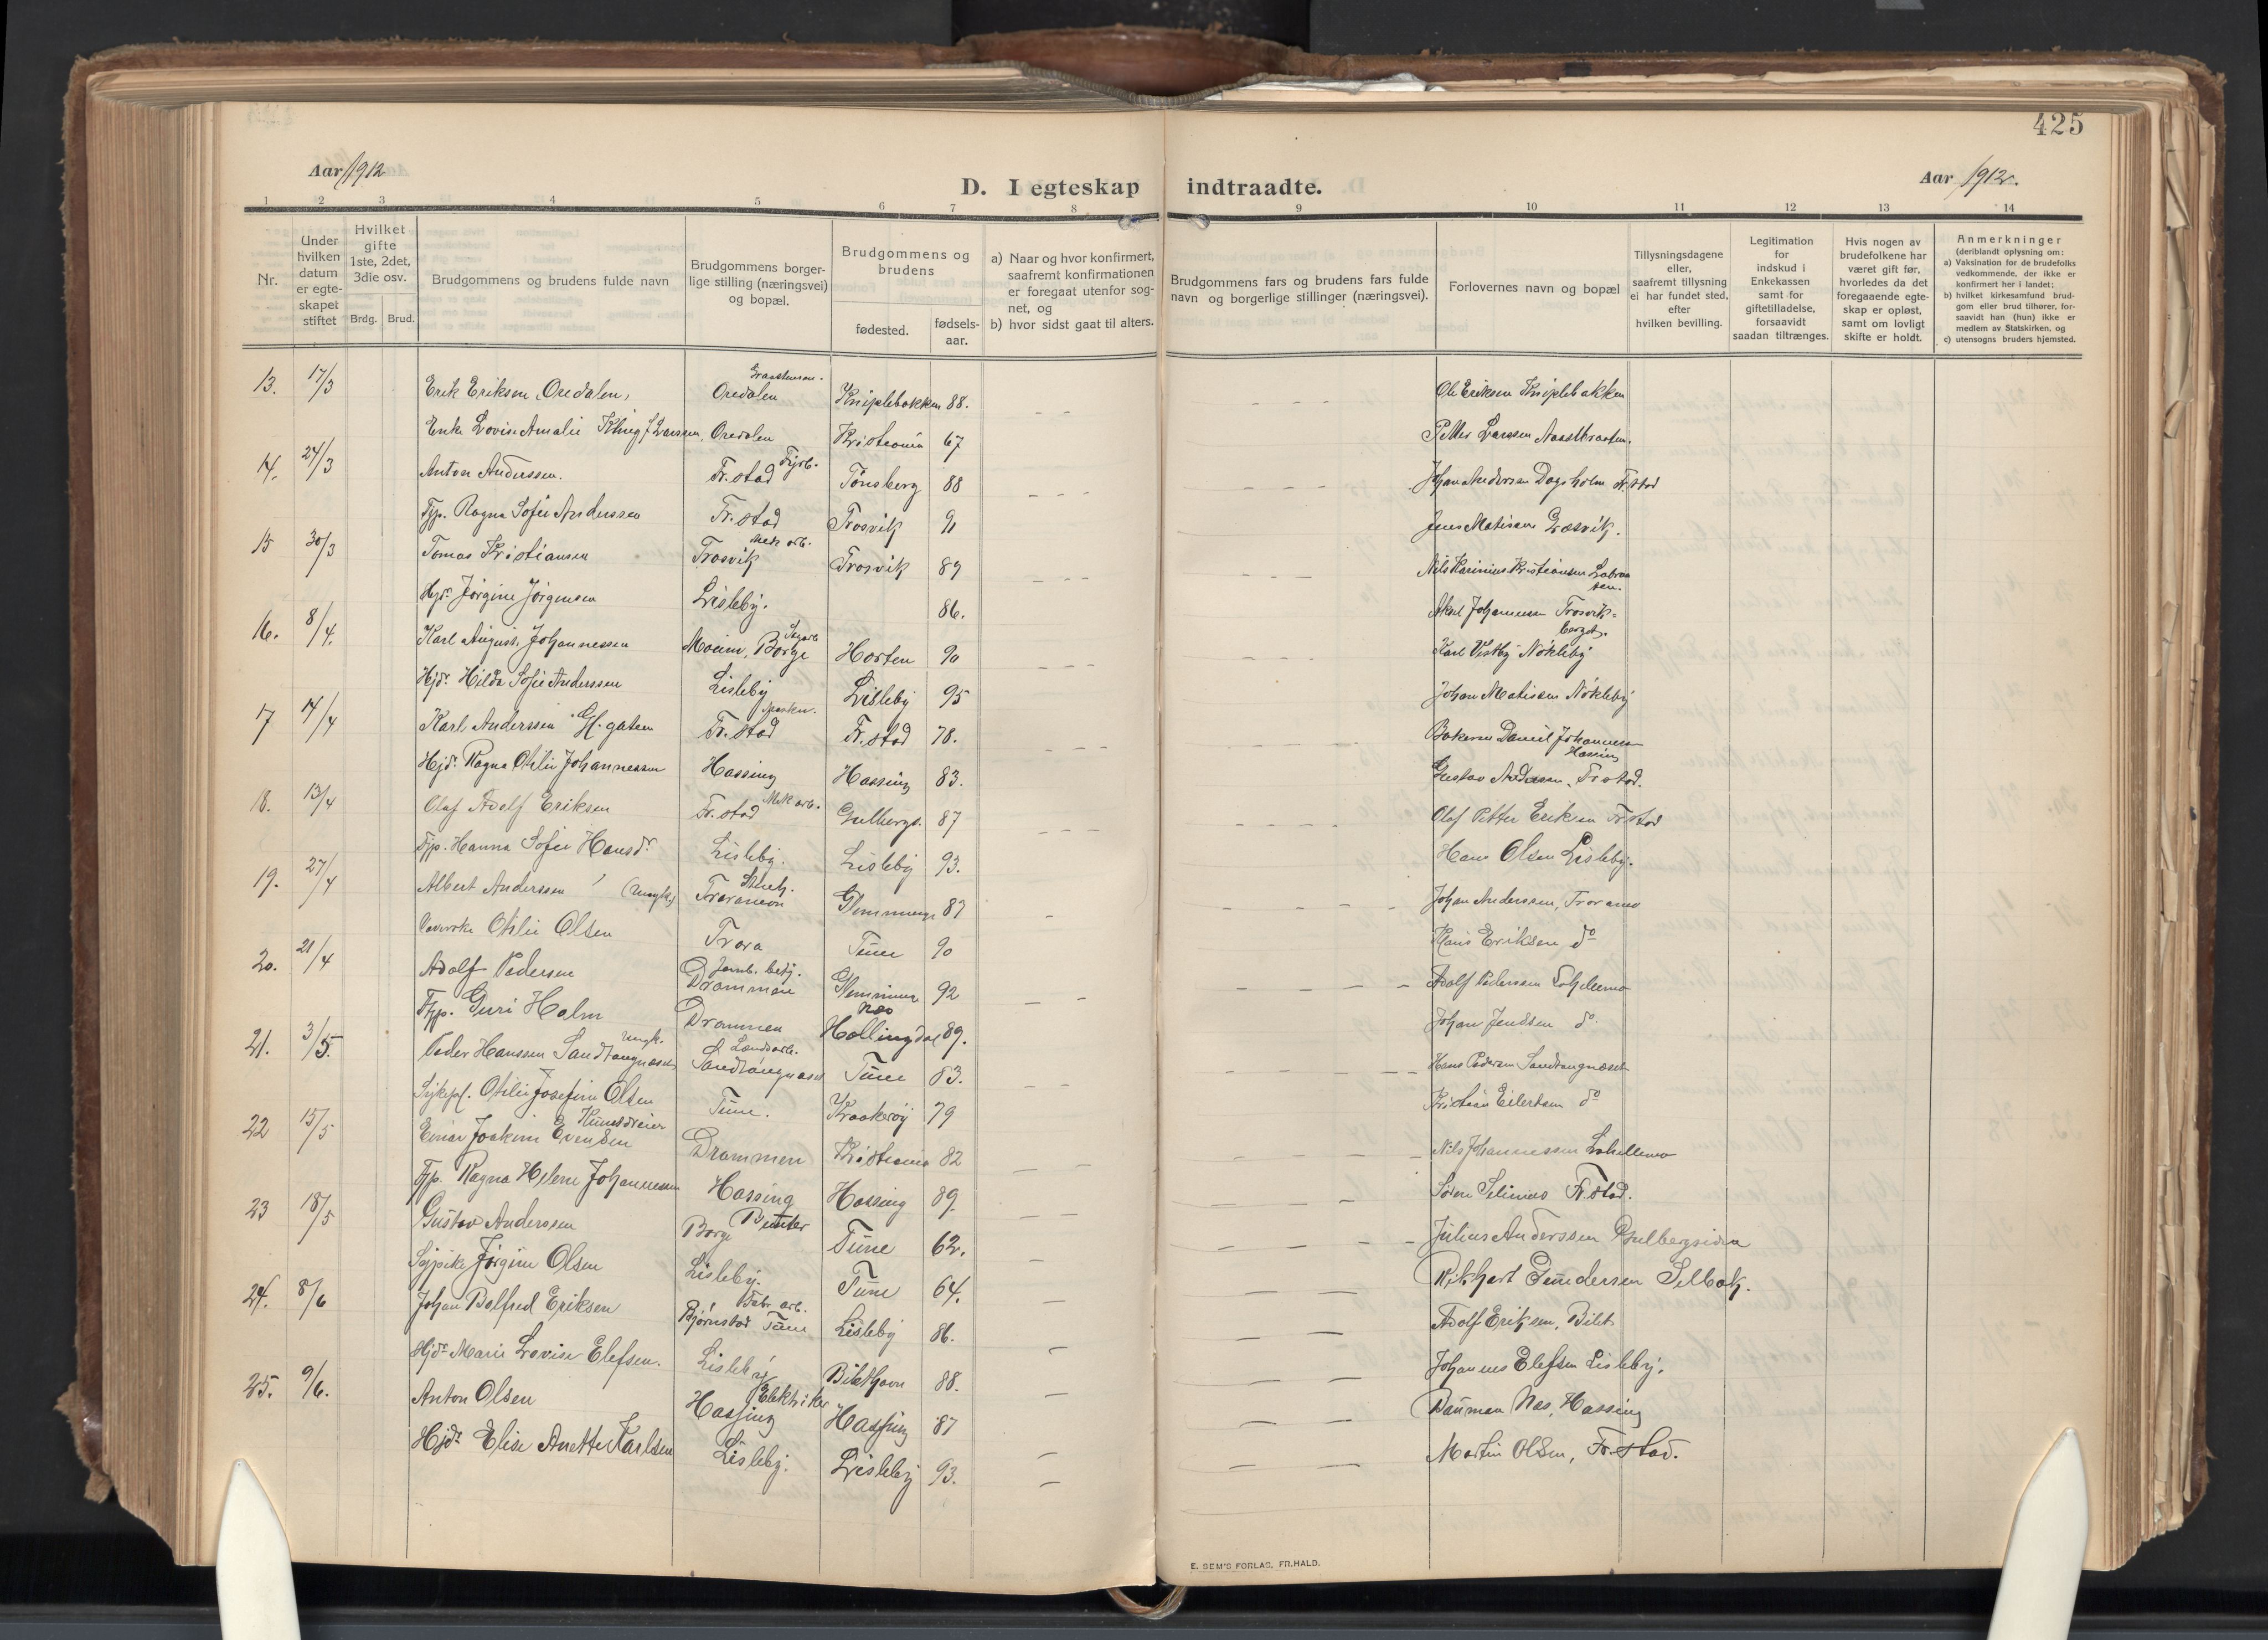 425
Aar 1912
D. I egteskap indtraadte.
Aar 1912.
1 2 3 4 5 6 7 8 9 10 11 12 13 14
Nr.
Under hvilken datum er egte- skapet stiftet
Hvilket gifte 1ste, 2det, 3die osv.
Brdg. Brud.
Brudgommens og brudens fulde navn
Brudgommens borger- lige stilling (næringsvei) og bopæl.
Brudgommens og brudens
fødested.
fødsels- aar.
a) Naar og hvor konfirmert, saafremt konfirmationen er foregaat utenfor sog- net, og
b) hvor sidst gaat til alters.
Brudgommens fars og brudens fars fulde navn og borgerlige stillinger (næringsvei).
Forlovernes navn og bopæl
Tillysningsdagene eller, saafremt tillysning ei har fundet sted, efter hvilken bevilling.
Legitimation for indskud i Enkekassen samt for giftetilladelse, forsaavidt saadan tiltrænges.
Hvis nogen av brudefolkene har været gift før, hvorledes da det foregaaende egte- skap er opløst, samt om lovligt skifte er holdt.
Anmerkninger
(deriblandt oplysning om:
a) Vaksination for de brudefolks vedkommende, der ikke er konfirmert her i landet;
b) hvilket kirkesamfund brud- gom eller brud tilhører, for- saavidt han (hun) ikke er medlem av Statskirken, og
c) utensogns bruders hjemsted.
13. 17/3 Erik Eriksen, Oredalen, Oredalen Kniplebakken 88. Ole Eriksen Kniplebakken
Enke Lovise Amalie Larsen, Oredalen Kristiania 67 Petter Larssen
14. 24/3 Anton Anderssen. Fr.stad Fyrb. Tønsberg 88 Johan Anderssen Dagsholm Fr.stad
Tjp. Ragna Sofie Anderssen Fr.stad Trosvik 91 Jens Matisen Græsvik.
15 30/3 Tomas Kristiansen Mek arb. Trosvik Trosvik 89 Nils Karinius Kristiansen
Hjd. Jørgine Jørgensen Lisleby. 86. Johannessen Trosvik- berget.
16. 8/4. Karl August Johannessen Moum, Borge Sagarb. Horten 90 Karl Vestby Nøkleby
Hjd. Hilda Sofie Anderssen Lisleby Lisleby 95 Johan Matisen Nøkleby
17 14/4 Karl Anderssen Gl. gaten Fr.stad Fr.stad 78. Bakeren Daniel Johannessen Hassing
Hjd. Ragna Otilie Johannessen Hassing Hassing 83. Gustav Anderssen, Fr.stad.
18. 13/4 Olaf Adolf Eriksen Fr.stad Mek arb. 87 Olaf Petter Eriksen Fr.stad
Tjp. Hanna Sofie Hansdr. Lisleby. Lisleby 93. Hans Olsen Lisleby.
19. 27/4 Albert Anderssen (Ungk.) Glemminge 87 Johan Anderssen,
Otilie Olsen Trara Tune 90 Hans Eriksen do
20. 21/4 Adolf Pedersen Jernb. betj. Drammen Glemminge 92 Adolf Pedersen
Tjp. Guri Holm Drammen Hallingdal 89. Johan Jensen do.
21. 3/5. Peder Hanssen Sandtangnæset Ungk. Landarb. Sandtangnæset Tune 83. Hans Pedersen Sandtangnæset
Sykepl. Otilie Josefine Olsen Tune. Kraakerøy 79 Kristian Eilertsen do
22 15/5 Einar Joakim Evensen Kunstdreier Drammen Kristiania 82 Nils Johannessen
Tjp. Ragna Helene Johannessen Hassing Hassing 89. Søren Selinius Fr.stad.
23 18/5 Gustav Anderssen Borge Tune 62. Julius Anderssen
Sypike Jørgine Olsen Lisleby. Tune 64. Rikhart Gundersen Selbak.
24. 8/6 Johan Balfred Eriksen Fabr. arb. Bjørnstad Tune Lisleby 86. Adolf Eriksen, Bilet
Hjd. Marie Lovise Elefsen. Lisleby 88. Johannes Elefsen Lisleby.
25. 9/6. Anton Olsen Elektriker Hassing Hassing 87 Næs, Hassing
Hjd. Elise Anette Karlsen Lisleby. Lisleby 93. Martin Olsen, Fr.stad.
E. SEM'S FORLAG, FR.HALD.